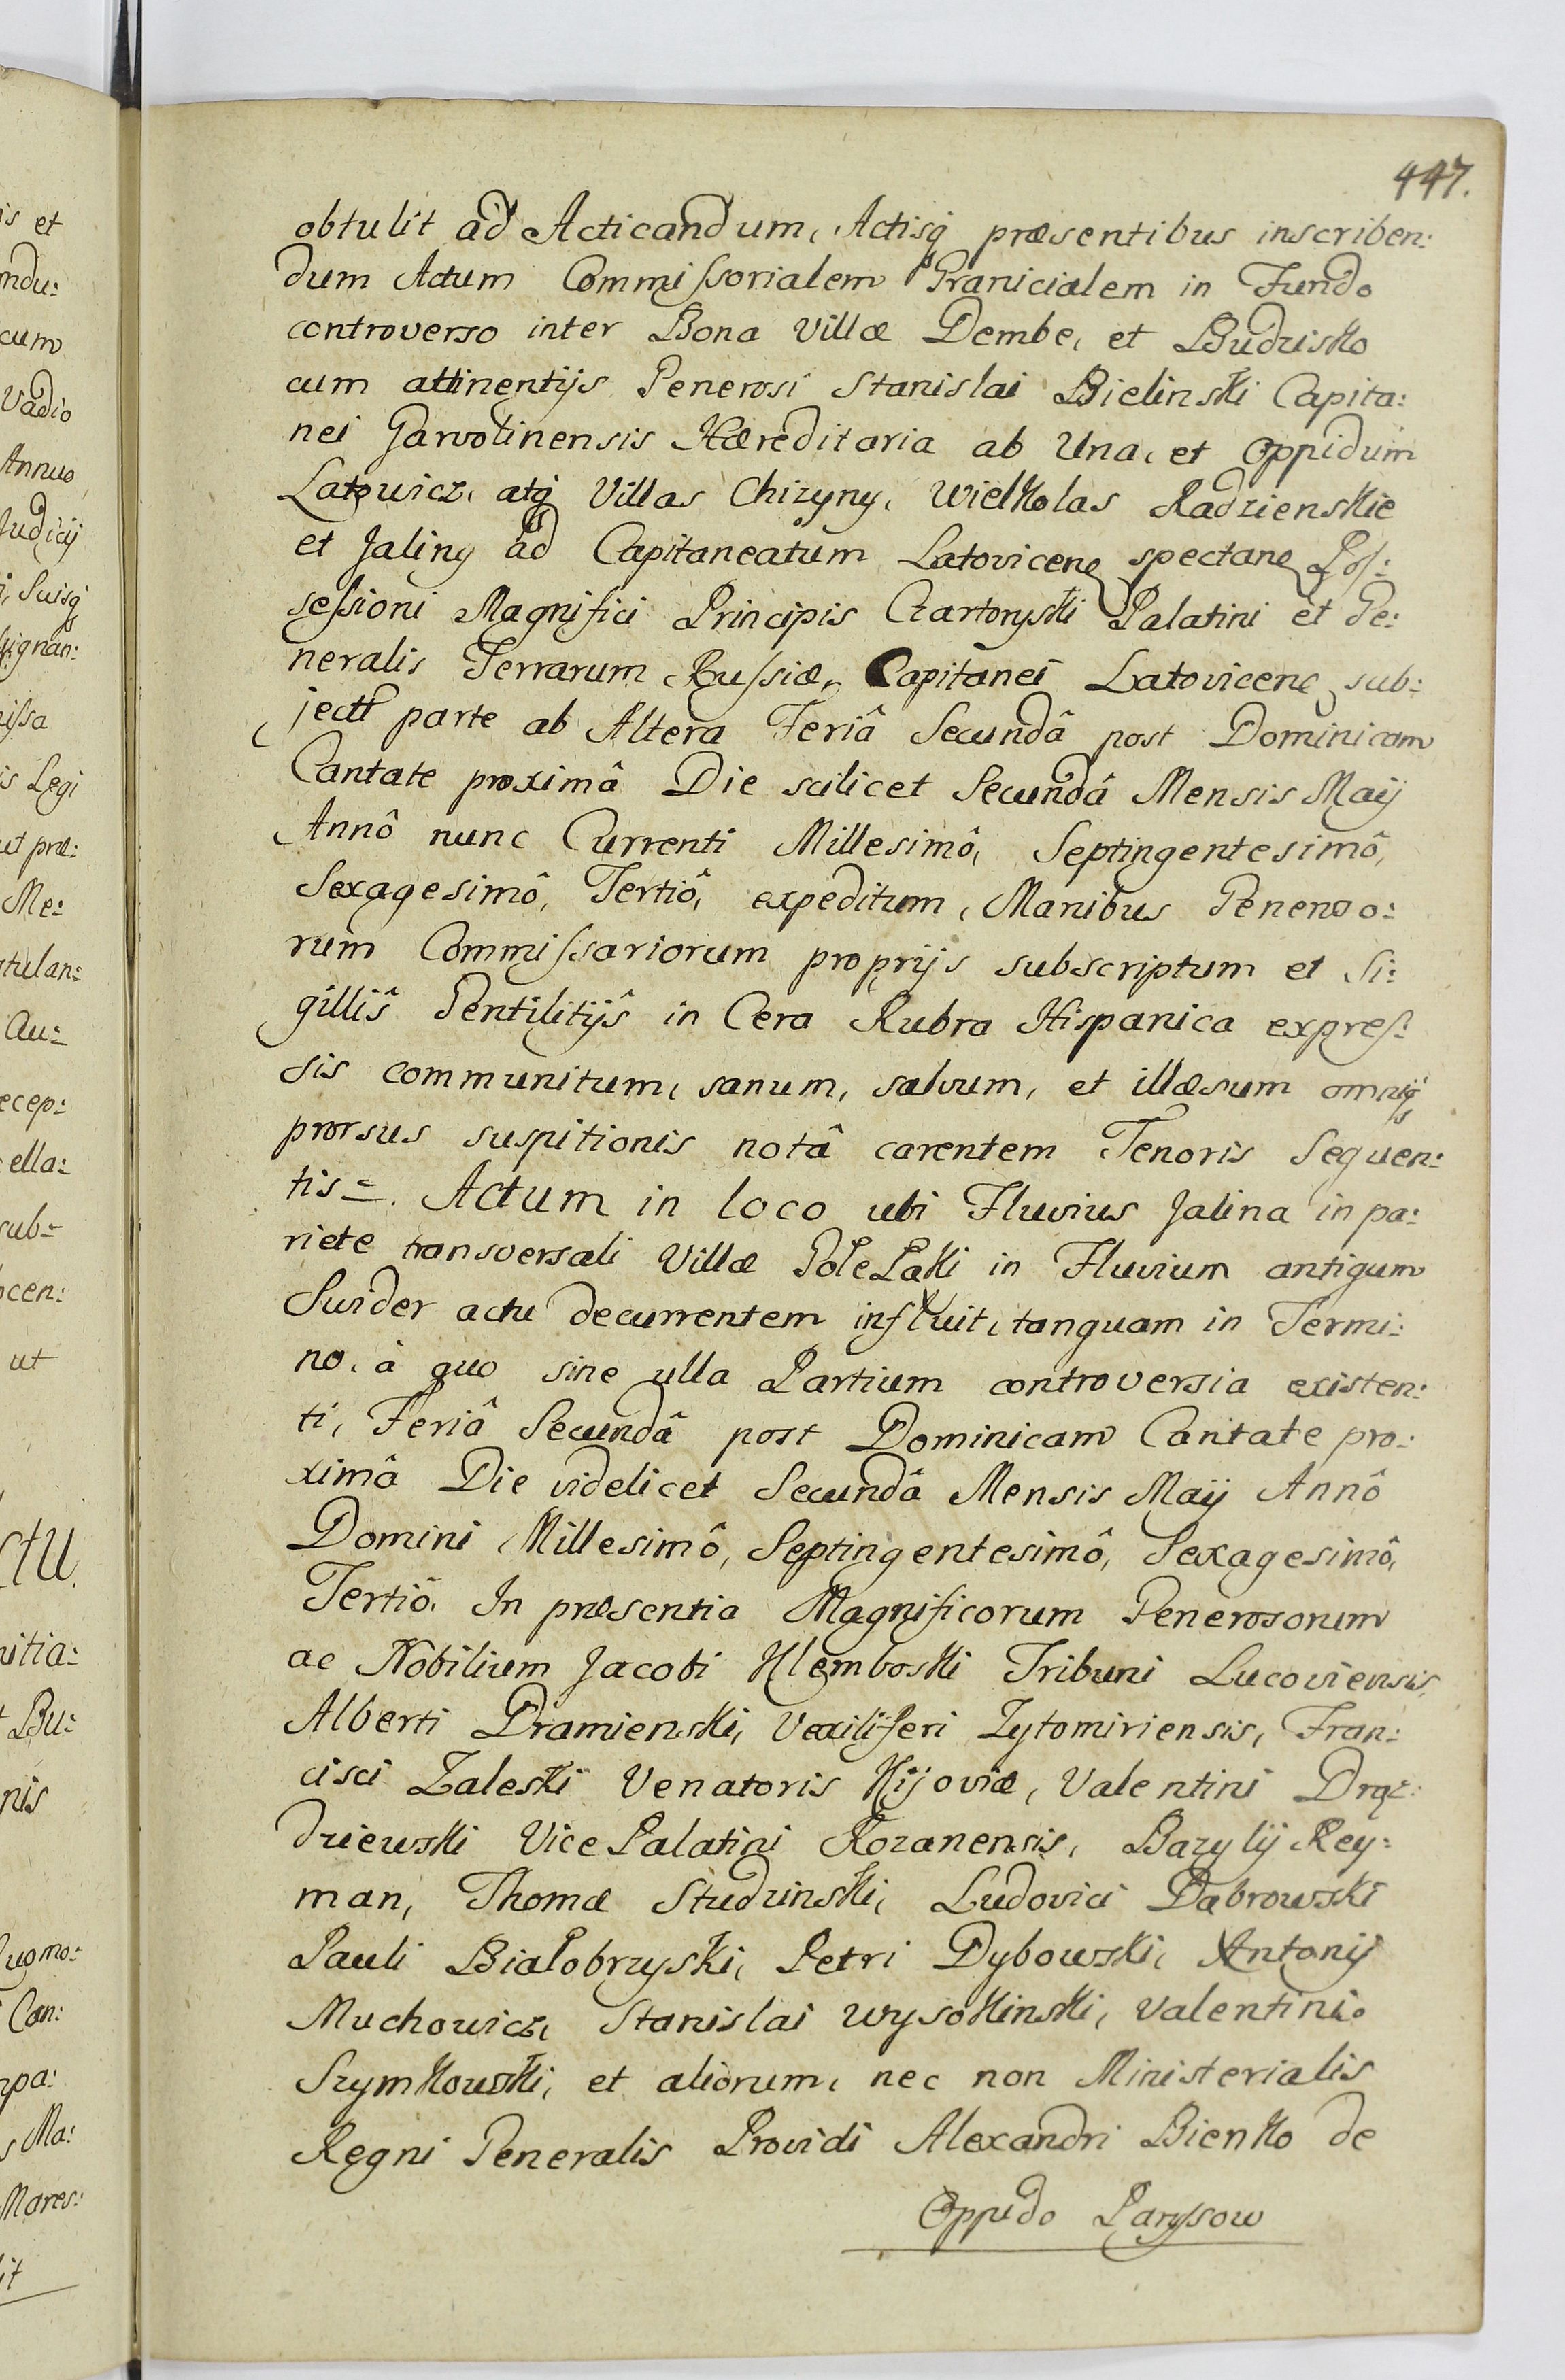 447.
obtulit ad Acticandum, Actisq praesentibus inscriben:
dum Actum Commissorialem Granicialem in Fundo
controverso inter Bona Villæ Dembe, et Budzisko
cum attinentijs Generosi Stanislai Bielinski Capita:
nei Garvolinensis Hæreditaria ab Una, et Oppidum
Latowicz, atq Villas Chizyny, Wielkolas Radzienskie
et Jaliny ad Capitaneatum Latovicen spectan Pos:
sessioni Magnifici Principis Czartoryski Palatini et Ge:
neralis Terrarum Russiæ, Capitanei Latovicen sub:
jectt parte ab Altera Feriâ Secundâ post Dominicam
Cantate proximâ Die scilicet Secundâ Mensis Maij
Annô nunc Currenti Millesimô, Septingentesimô,
Sexagesimô, Tertiô, expeditum, Manibus Generoso:
rum Commissariorum proprijs subscriptum et Si:
gillis Gentilitijs in Cera Rubra Hispanica expres:
sis communitum, sanum, salvum, et illæsum omniq
prorsus suspitionis notâ carentem Tenoris Sequen:
tis =. Actum in loco ubi Fluvius Jalina in pa:
riete transversali Villæ Pole Laki in Fluvium antiquum
Swider actu decurrentem influit, tanquam in Termi:
no, à quo sine ulla Partium controversia existen:
ti, Feriâ Secundâ post Dominicam Cantate pro:
ximâ Die videlicet Secundâ Mensis Maij Annô
Domini Millesimô, Septingentesimô, Sexagesimô,
Tertiô. In præsentia Magnificorum Generosorum
ac Nobilium Jacobi Klemboski Tribuni Lucoviensis,
Alberti Dramienski, Vexiliferi Zytomiriensis, Fran:
cisci Zaleski Venatoris Kijoviæ, Valentini Drąż:
dziewski Vice Palatini Rozanensis, Bazylij Rey:
man, Thomæ Studzinski, Ludovici Dąbrowski
Pauli Białobrzyski, Petri Dybowski, Antonij
Muchowicz, Stanislai Wysokinski, Valentini
Szymkowski, et aliorum, nec non Ministerialis
Regni Generalis Providi Alexandri Bienko de
Oppido Paryssow